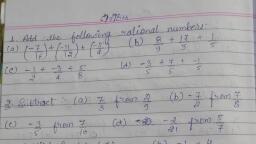 1. Add the following rational numbers:
(a) (-7/ ) + (-11/12) + (-5/4) (b) 8/9 + 17/3 + 1/5
(c) -1/2 + -3/4 + 5/8 (d) -3/5 + 7/5 + -1/5
2. Subtract: (a) 7/3 from 8/9 (b) -7/ from 7/8
(c) -3/5 from 7/10 (d) -2/21 from 5/7